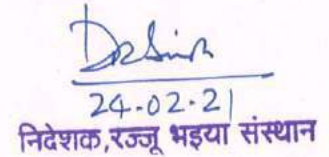 24.02.21
निदेशक,रज्जू भइया संस्थान